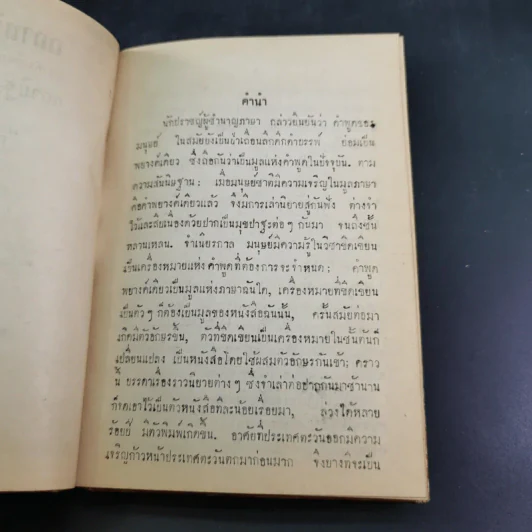 คำนำ
นักปราชญ์ผู้ชำนาญภาษา กล่าวยืนยันว่า คำพูดของ
มนุษย์ ในสมัยยังเป็นป่าเถื่อนลึกดึกดำบรรพ์ ย่อมเป็น
พยางค์เดียว ซึ่งถือกันว่าเป็นมูลแห่งคำพูดในปัจจุบัน. ตาม
ความสันนิษฐาน: เมื่อมนุษย์ชาติมีความเจริญในมูลภาษา
คือคำพยางค์เดียวแล้ว จึงมีการเล่านิยายสู่กันฟัง ต่างจำ
ไว้และสืบเนื่องด้วยปากเป็นมุขปาฐะต่อๆ กันมา จนถึงชั้น
หลานเหลน. จำเนียรกาล มนุษย์มีความรู้ในวิชาขีดเขียน
เป็นเครื่องหมายแห่งคำพูดที่ต้องการจะจำหนด: คำพูด
พยางค์เดียวเป็นมูลแห่งภาษาฉันใด, เครื่องหมายที่ขีดเขียน
เป็นตัวๆ ก็ต้องเป็นมูลของหนังสือฉันนั้น, ครั้นสมัยต่อมา
เกิดมีตัวอักษรขึ้น, ตัวที่ขีดเขียนเป็นเครื่องหมายในชั้นต้นก็
เปลี่ยนแปลง เป็นหนังสือโดยใช้ผสมตัวอักษรกันเข้า; คราว
นี้ บรรดาเรื่องราวนิยายต่างๆ ซึ่งจำเล่าต่อปากกันมาช้านาน
ก็จดเอาไว้เป็นตัวหนังสือทีละน้อยเรื่อยมา, ล่วงได้หลาย
ร้อยปี มีตัวพิมพ์เกิดขึ้น. อาศัยที่ประเทศตะวันออกมีความ
เจริญก้าวหน้าประเทศตะวันตกมาก่อนมาก จึงบางทีจะเป็น